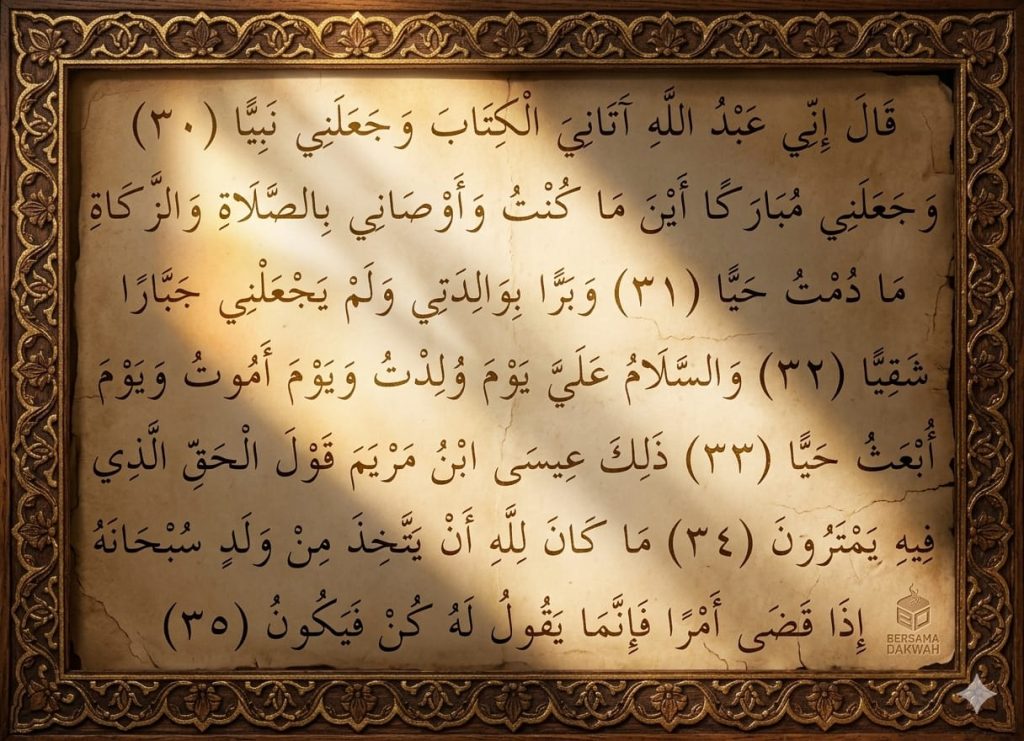 قَالَ إِنِّي عَبْدُ اللَّهِ آَتَانِيَ الْكِتَابَ وَجَعَلَنِي نَبِيًّا (٣٠)
وَجَعَلَنِي مُبَارَكًا أَيْنَ مَا كُنْتُ وَأَوْصَانِي بِالصَّلَاةِ وَالزَّكَاةِ
مَا دُمْتُ حَيًّا (٣١) وَبَرًّا بِوَالِدَتِي وَلَمْ يَجْعَلْنِي جَبَّارًا
شَقِيًّا (٣٢) وَالسَّلَامُ عَلَيَّ يَوْمَ وُلِدْتُ وَيَوْمَ أَمُوتُ وَيَوْمَ
أُبْعَثُ حَيًّا (٣٣) ذَلِكَ عِيسَى ابْنُ مَرْيَمَ قَوْلَ الْحَقِّ الَّذِي
فِيهِ يَمْتَرُونَ (٣٤) مَا كَانَ لِلَّهِ أَنْ يَتَّخِذَ مِنْ وَلَدٍ سُبْحَانَهُ
إِذَا قَضَى أَمْرًا فَإِنَّمَا يَقُولُ لَهُ كُنْ فَيَكُونُ (٣٥)
BERSAMA
DAKWAH